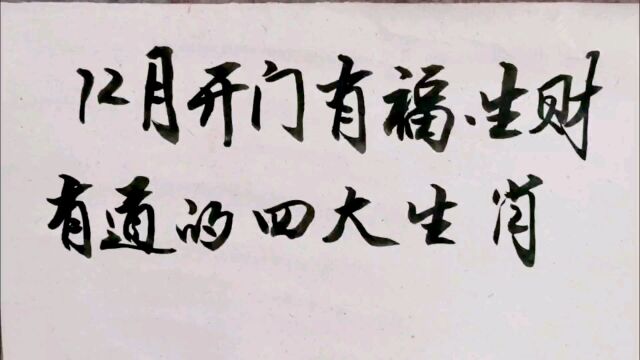 12月开门有福、生财
有道的四大生肖